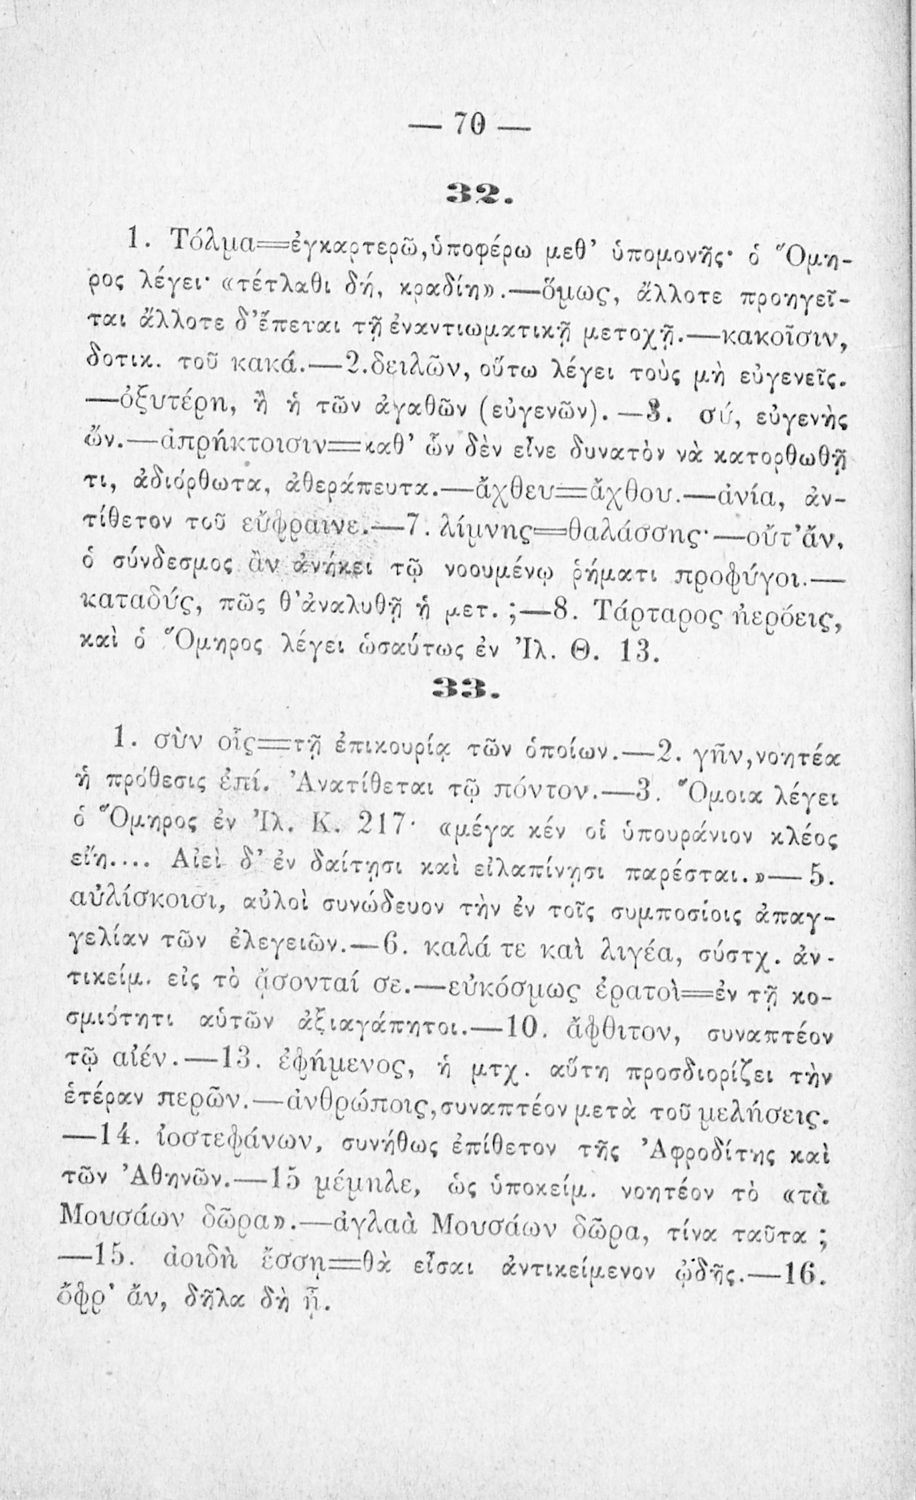 — 70 —
32.
1. Τόλμα=ἐγκαρτερῶ,ὑποφέρω μεθ’ ὑπομονῆς· ὁ Ὅμη-
ρος λέγει· «τέτλαθι δή, κραδίη».—ὅμως, ἄλλοτε προηγεῖ-
ται ἄλλοτε δ’ἕπεται τῇ ἐναντιωματικῇ μετοχῇ.—κακοῖσιν,
δοτικ. τοῦ κακά.—2.δειλῶν, οὕτω λέγει τοὺς μὴ εὐγενεῖς.
—ὀξυτέρη, ἢ ἡ τῶν ἀγαθῶν (εὐγενῶν).—3. σύ, εὐγενὴς
ὤν.—ἀπρήκτοισιν=καθ’ ὧν δὲν εἶνε δυνατὸν νὰ κατορθωθῇ
τι, ἀδιόρθωτα, ἀθεράπευτα.—ἄχθευ=ἄχθου.—ἀνία, ἀν-
τίθετον τοῦ εὔφραινε.—7. λίμνης=θαλάσσης·—οὔτ’ἄν,
ὁ σύνδεσμος ἂν ἀνήκει τῷ νοουμένῳ ῥήματι προφύγοι.—
καταδύς, πῶς θ’ἀναλυθῇ ἡ μετ. ;—8. Τάρταρος ἠερόεις,
καὶ ὁ Ὅμηρος λέγει ὡσαύτως ἐν Ἰλ. Θ. 13.
33.
1. σὺν οἷς=τῇ ἐπικουρίᾳ τῶν ὁποίων.—2. γῆν,νοητέα
ἡ πρόθεσις ἐπί. Ἀνατίθεται τῷ πόντον.—3. Ὅμοια λέγει
ὁ Ὅμηρος ἐν Ἰλ. Κ. 217· «μέγα κέν οἱ ὑπουράνιον κλέος
εἴη.... Αἰεὶ δ’ ἐν δαίτησι καὶ εἰλαπίνησι παρέσται.»—5.
αὐλίσκοισι, αὐλοὶ συνώδευον τὴν ἐν τοῖς συμποσίοις ἀπαγ-
γελίαν τῶν ἐλεγειῶν.—6. καλά τε καὶ λιγέα, σύστχ. ἀν-
τικείμ. εἰς τὸ ᾄσονταί σε.—εὐκόσμως ἐρατοὶ=ἐν τῇ κο-
σμιότητι αὐτῶν ἀξιαγάπητοι.—10. ἄφθιτον, συναπτέον
τῷ αἰέν.—13. ἐφήμενος, ἡ μτχ. αὕτη προσδιορίζει τὴν
ἑτέραν περῶν.—ἀνθρώποις,συναπτέον μετὰ τοῦ μελήσεις.
—14. ἰοστεφάνων, συνήθως ἐπίθετον τῆς Ἀφροδίτης καὶ
τῶν Ἀθηνῶν.—15 μέμηλε, ὡς ὑποκείμ. νοητέον τὸ «τὰ
Μουσάων δῶρα».—ἀγλαὰ Μουσάων δῶρα, τίνα ταῦτα ;
—15. ἀοιδὴ ἔσσῃ=θὰ εἶσαι ἀντικείμενον ᾠδῆς.—16.
ὄφρ’ ἄν, δῆλα δὴ ᾖ.